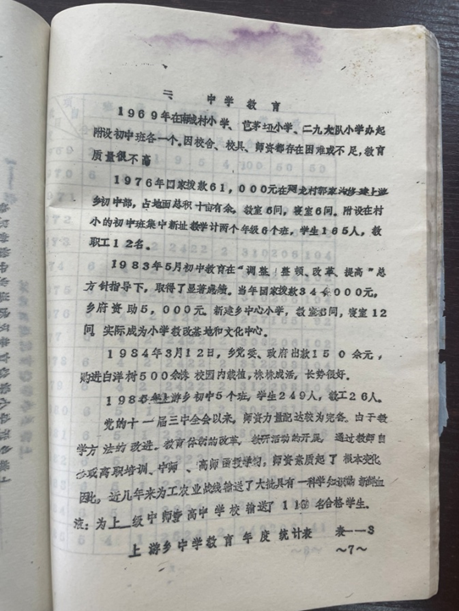 二 中学教育
1969年在 村小学、芭茅垭小学、二九大队小学办起
附设初中班各一个。因校舍、校具、师资都存在困难或不足,教育
质量很不高
1976年国家拨款61,000元在 龙村郭家沟修建上游
乡初中部,占地面总积十亩有余。教室6间,寝室6间。附设在村
小的初中班集中新址教学计两个年级6个班,学生165人,教
职工12名。
1983年5月初中教育在“调整 整顿、改革 提高”总
方针指导下,取得了显著成绩。当年国家拨款34,000元,
乡府资助5,000元。新建乡中心小学,教室8间,寝室12
间 实际成为小学教改基地和文化中心。
1984年3月12日,乡党委、政府出款150余元,
购进白洋树500余株 校园内栽植,株株成活,长势很好。
198 年上游乡初中5个班,学生249人,教工26人。
党的十一届三中全会以来,师资力量配达较为完备。由于教
学方法的改进、教育体制的改革、教研活动的开展,通过教师自
修 高职培训、中师、高师函授学习,师资素质起了根本变化
因此,近几年来为工农业战线输送了大批具有一科学知识的新鲜血
液;为上级中师暨高中学校输送了116名合格学生。
上游乡中学教育年度统计表 表—3
~7~